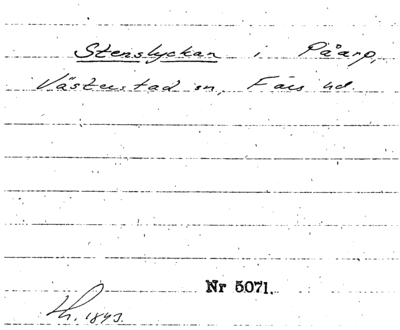 Stenslyckan i Påarp,
Västerstad sn, Färs hd.
Nr 5071.
Lh. 1843.